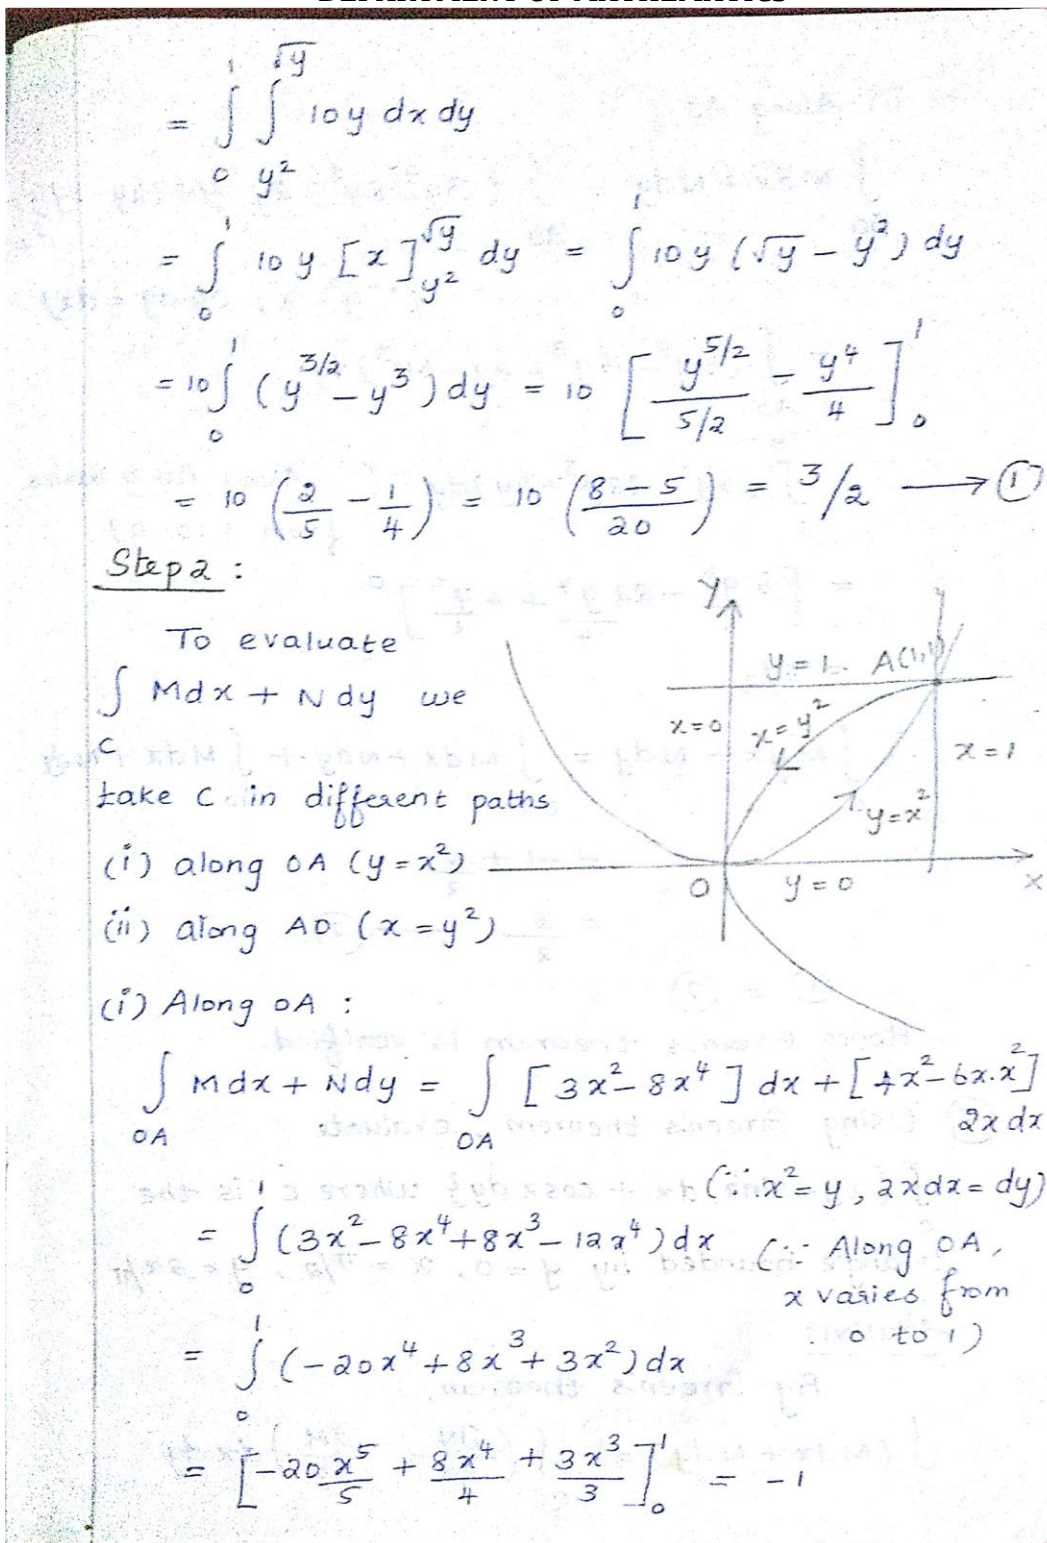 = ∫₀¹ ∫_{y²}^{√y} 10y dx dy
= ∫₀¹ 10y [x]_{y²}^{√y} dy = ∫₀¹ 10y (√y − y²) dy
= 10 ∫₀¹ (y^{3/2} − y³) dy = 10 [ y^{5/2}/(5/2) − y⁴/4 ]₀¹
= 10 (2/5 − 1/4) = 10 ((8 − 5)/20) = 3/2 ⟶ ①
Step 2 :
To evaluate
∫_C Mdx + Ndy we
take C in different paths
(i) along OA (y = x²)
(ii) along AO (x = y²)
Y
y = 1
A(1,1)
x = 0
x = y²
x = 1
y = x²
O
y = 0
X
(i) Along OA :
∫_{OA} Mdx + Ndy = ∫_{OA} [3x² − 8x⁴] dx + [4x² − 6x.x²]
2x dx
(∵ x² = y, 2xdx = dy)
= ∫₀¹ (3x² − 8x⁴ + 8x³ − 12x⁴) dx (∵ Along OA,
x varies from
0 to 1)
= ∫₀¹ (−20x⁴ + 8x³ + 3x²) dx
= [ −20 x⁵/5 + 8x⁴/4 + 3x³/3 ]₀¹ = −1